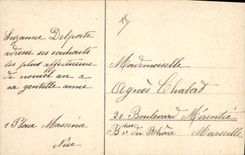 Suzanne Delporte
adresse ses souhaits
les plus affectueux
de nouvel an a
sa gentille amie
1 Place Masséna
Nice
Mademoiselle
Agnès Chabod
20 Boulevard
Bches du Rhône
Marseille